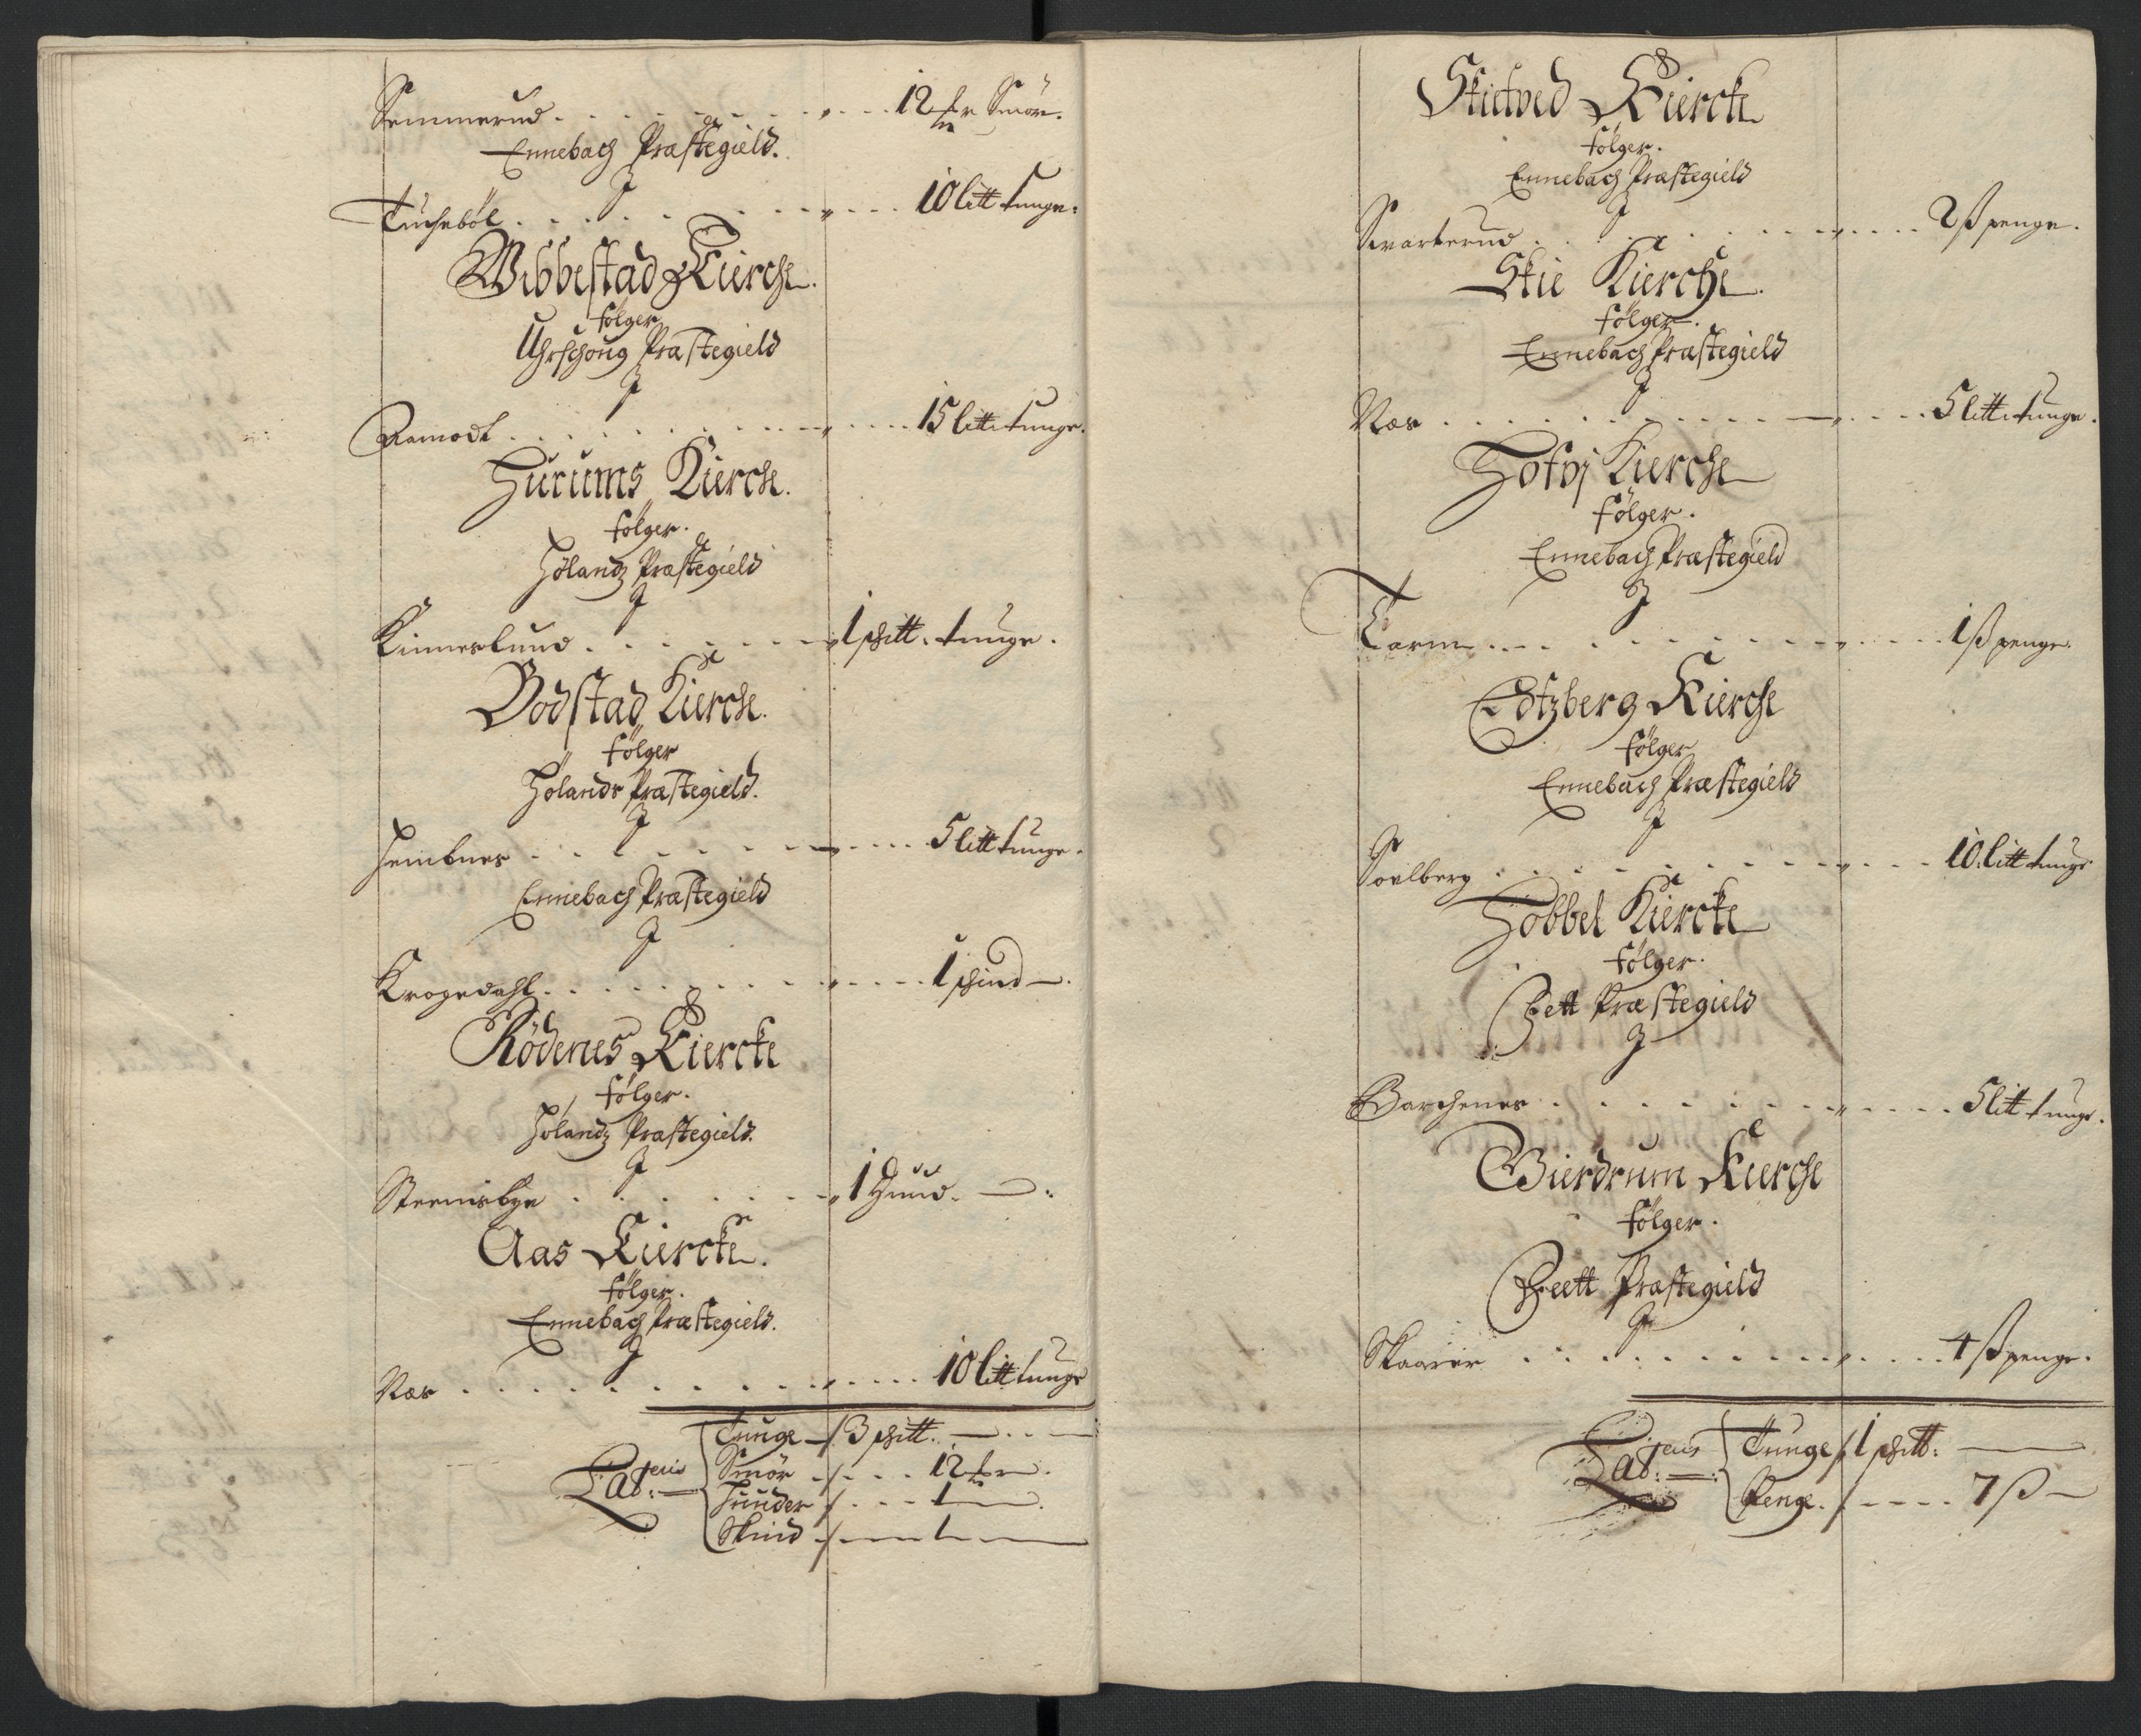 Semmerud . . . . . . . . . 12 Smör.
Ennebach Præstegield.
J
Tucheböl . . . . . . . . . 10 litt tunge.
Webbestad Kierche.
følger
Uhrschoug Præstegield
J
Aamodt . . . . . . . . . 15 litt tunge.
Hurums Kierche.
følger.
Hölandz Præstegield
J
Kinnerlund . . . . . . . 1 schitt. tunge.
Bodstad Kierche.
følger
Hölands Præstegield.
J
Hembnes . . . . . . . . . 5 litt tunge.
Ennebach Præstegield
J
Krogedahl . . . . . . . . . 1 schind —.
Rödenes Kiercke
følger.
Hölandz Præstegield.
J
Steenisbye . . . . . . . 1 Huud. —.
Aas Kiercke.
følger.
Ennebach Præstegield.
J
Næs . . . . . . . . . 10 litt tunge
Lateris
Tunge — 3 schitt. —
Smör . . . 12
Huuder . . . 1 —.
Skind — 1 —
Skietved Kiercke
følger.
Ennebach Præstegield
J
Svarterud . . . . . . . . . 2 ß penge.
Skie Kierche.
følger.
Ennebach Præstegield
J
Næs . . . . . . . . . 5 litt tunge.
Hofvj Kierche
følger.
Ennebach Præstegield
J
Tarm . . . . . . . . . 1 ß penge.
Edtzberg Kierche
følger
Ennebach Præstegield
J
Soelberg . . . . . . . . . 10 litt tunge
Hobbel Kiercke
følger.
Fett Præstegield
J
Barchenes . . . . . . . . . 5 litt tunge.
Gierdrum Kierche
følger.
Feett Præstegield
J
Skaarer . . . . . . . . . 4 ß penge.
Lateris
Tunge 1 schitt: —
Penge. — 7 ß —